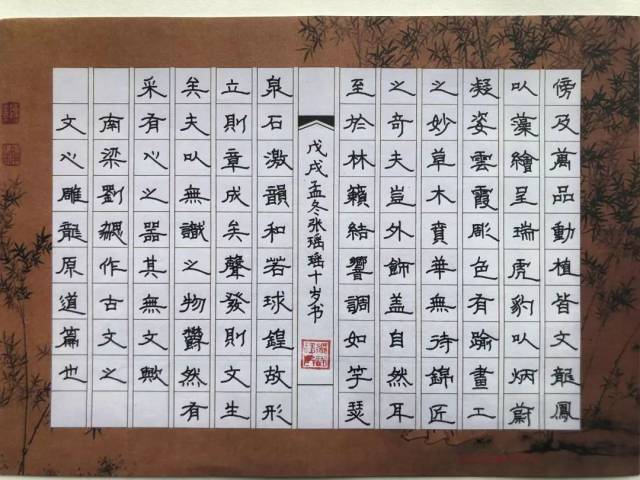 傍及萬品動植皆文龍鳳
以藻繪呈瑞虎豹以炳蔚
凝姿雲霞彫色有踰畫工
之妙草木賁華無待錦匠
之奇夫豈外飾蓋自然耳
至於林籟結響調如竽瑟
戊戌孟冬张瑶瑶十岁书
泉石激韻和若球鍠故形
立則章成矣聲發則文生
矣夫以無識之物鬱然有
采有心之器其無文歟
南梁劉勰作古文之
文心雕龍原道篇也